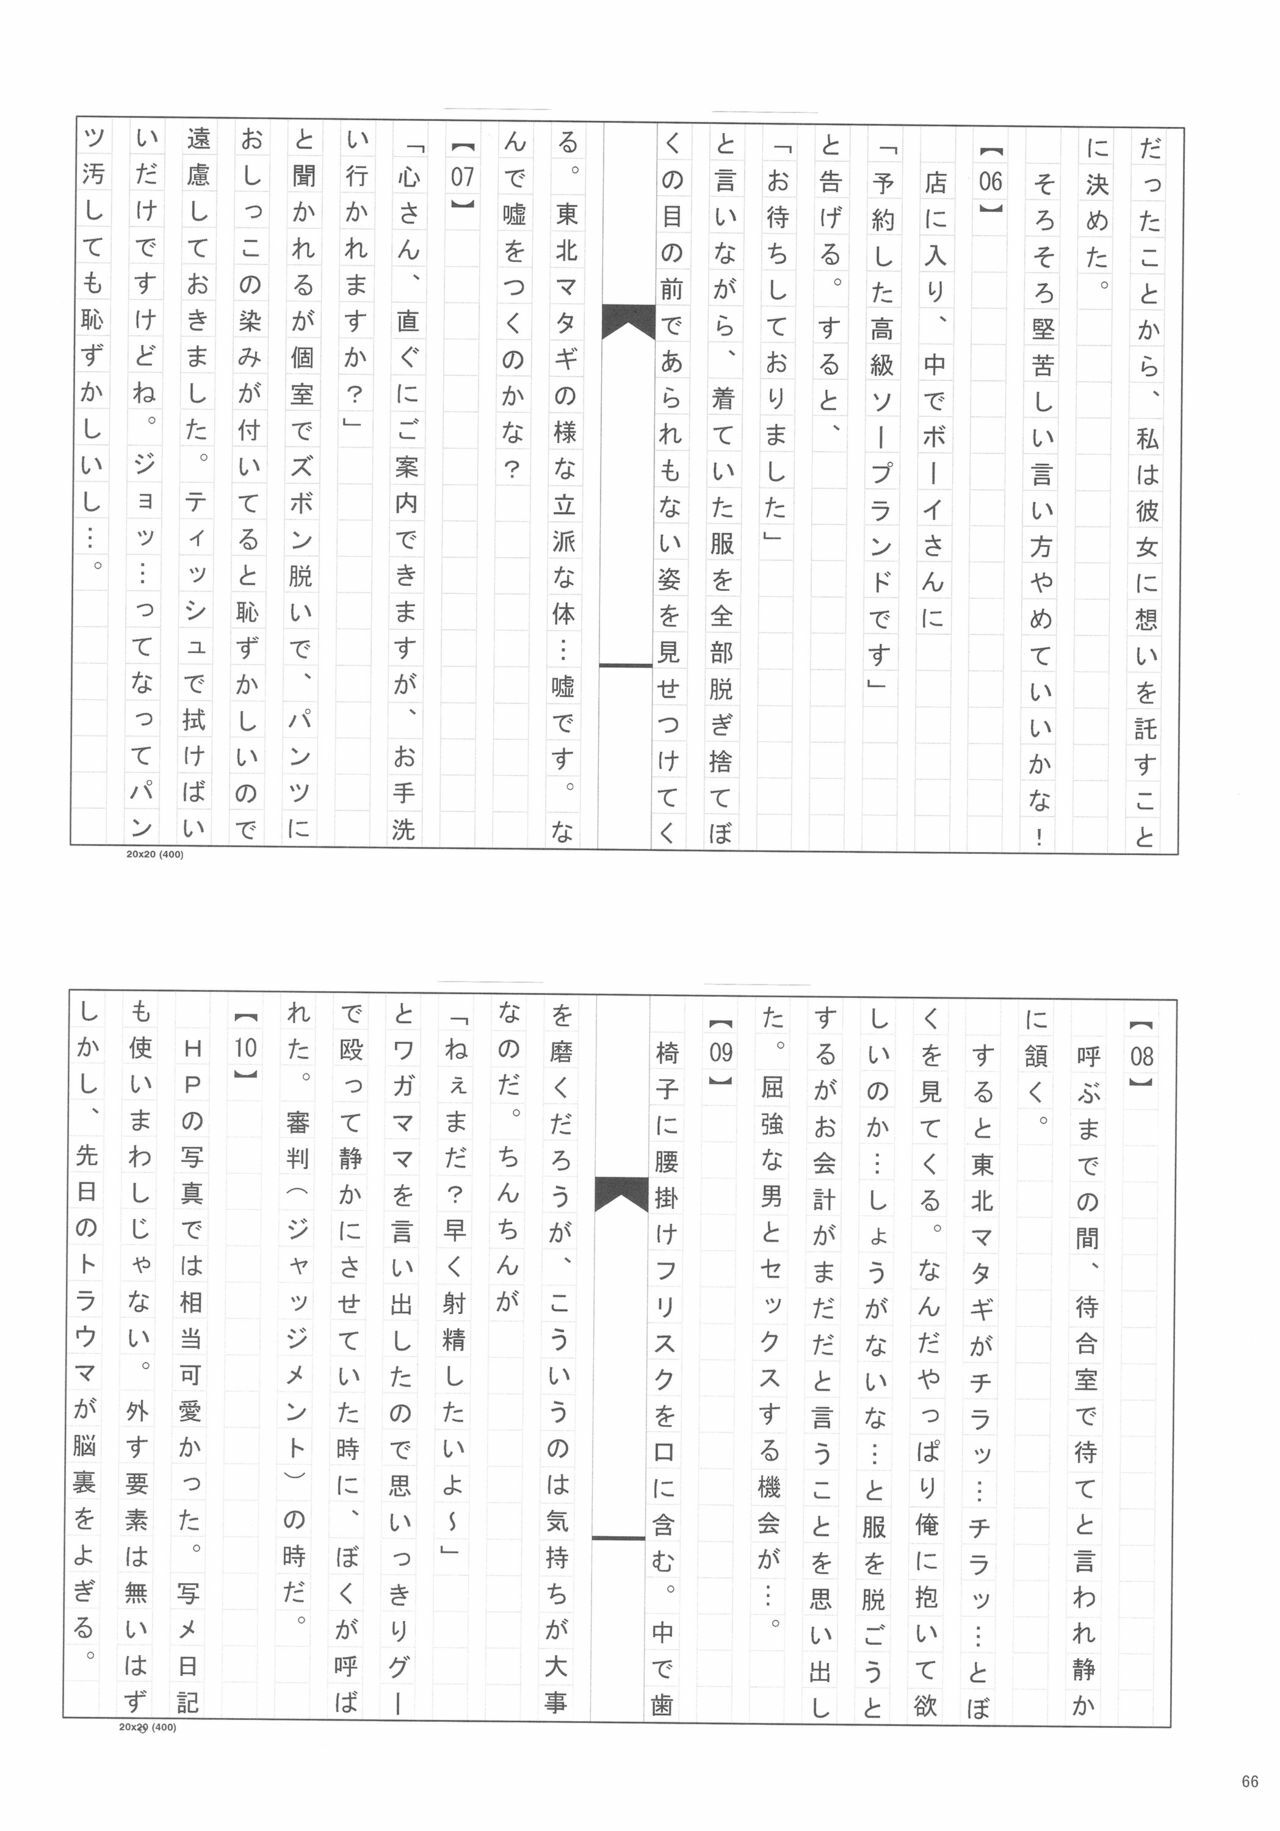 だったことから、私は彼女に想いを託すこと
に決めた。
　そろそろ堅苦しい言い方やめていいかな！
【06】
　店に入り、中でボーイさんに
「予約した高級ソープランドです」
と告げる。すると、
「お待ちしておりました」
と言いながら、着ていた服を全部脱ぎ捨てぼ
くの目の前であられもない姿を見せつけてく
る。東北マタギの様な立派な体…嘘です。な
んで嘘をつくのかな？
【07】
「心さん、直ぐにご案内できますが、お手洗
い行かれますか？」
と聞かれるが個室でズボン脱いで、パンツに
おしっこの染みが付いてると恥ずかしいので
遠慮しておきました。ティッシュで拭けばい
いだけですけどね。ジョッ…ってなってパン
ツ汚しても恥ずかしいし…。
20x20 (400)
【08】
　呼ぶまでの間、待合室で待てと言われ静か
に頷く。
　すると東北マタギがチラッ…チラッ…とぼ
くを見てくる。なんだやっぱり俺に抱いて欲
しいのか…しょうがないな…と服を脱ごうと
するがお会計がまだだと言うことを思い出し
た。屈強な男とセックスする機会が…。
【09】
　椅子に腰掛けフリスクを口に含む。中で歯
を磨くだろうが、こういうのは気持ちが大事
なのだ。ちんちんが
「ねぇまだ？早く射精したいよ～」
とワガママを言い出したので思いっきりグー
で殴って静かにさせていた時に、ぼくが呼ば
れた。審判（ジャッジメント）の時だ。
【10】
　ＨＰの写真では相当可愛かった。写メ日記
も使いまわしじゃない。外す要素は無いはず
しかし、先日のトラウマが脳裏をよぎる。
20x20 (400)
66